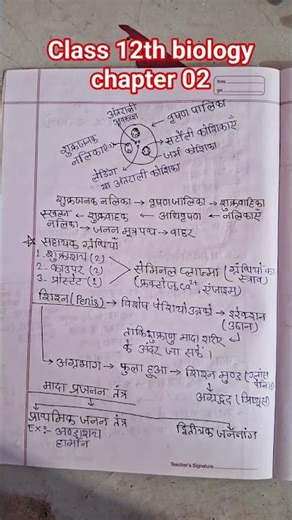 Class 12th biology
chapter 02
Date
अंतराली
अवकाश
वृषण पालिका
शुक्रजनक
नलिकाएं
सर्टोली कोशिकाएँ
जर्म कोशिका
लेडिग
या अंतराली कोशिका
शुक्रजनक नलिका → वृषण जालिका → शुक्रवाहिका
स्खलन ← शुक्रवाहक ← अधिवृषण ← नलिकाएँ
नलिका → जनन मूत्र पथ → बाहर
सहायक ग्रंथियाँ
1. शुक्राशय (2)
2. काउपर (2)
3. प्रोस्टेट (1)
सेमिनल प्लाज्मा (ग्रंथियों का स्त्राव)
(फ्रक्टोज, Ca²⁺, एंजाइम)
शिश्न (Penis) → विशेष पेशियाँ ऊतकों → इरेक्शन
(उद्दान)
ताकि शुक्राणु मादा शरीर
के अंदर जा सके।
अग्रभाग → फुला हुआ → शिश्न मुण्ड (ग्लांस पेनिस)
अग्रछद (प्रिप्यूस)
मादा प्रजनन तंत्र
प्राथमिक जनन तंत्र
द्वितीयक जननांग
Ex:- अण्डाशय
हार्मोन
Teacher's Signature